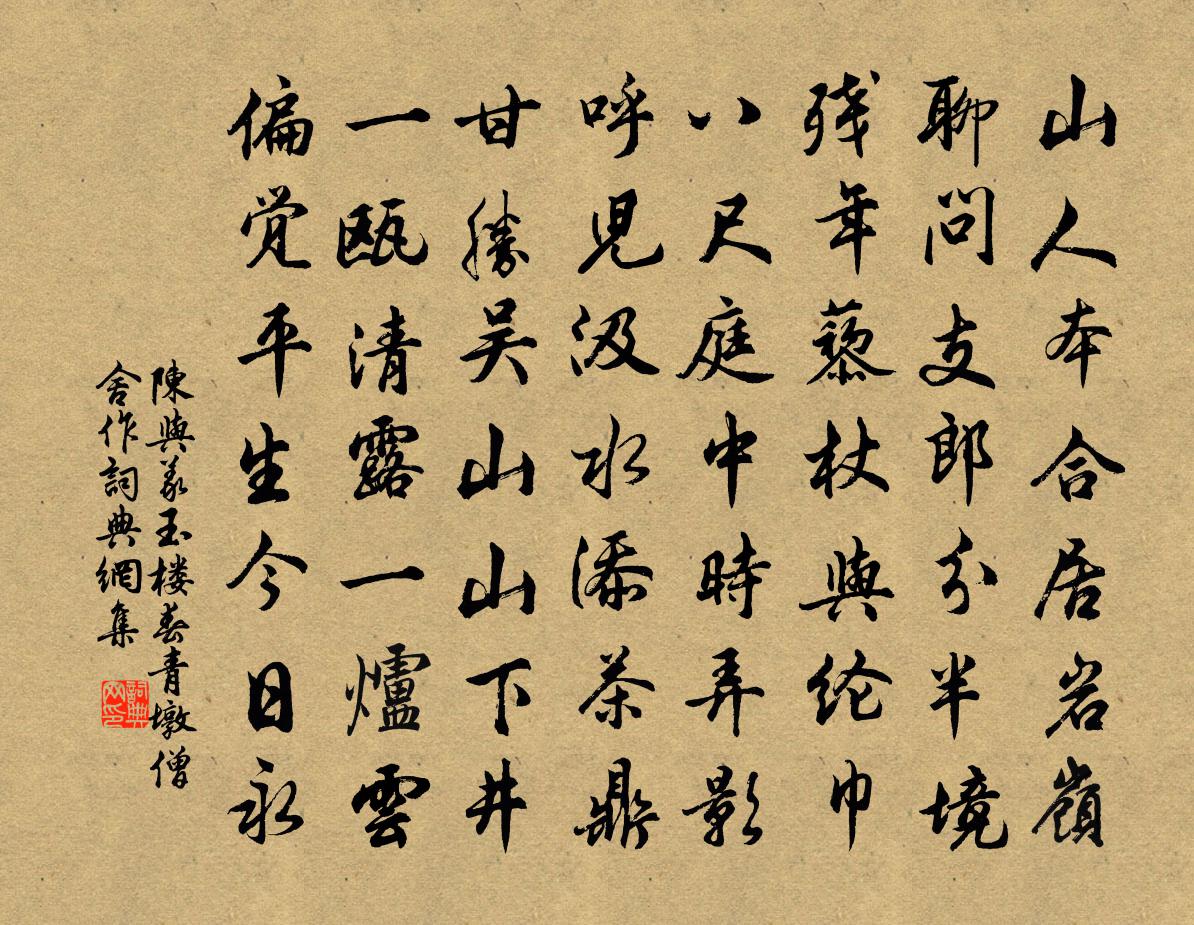 山人本合居岩嶺
聊问支郎分半境
残年藜杖與纶巾
八尺庭中時弄影
呼児汲水添茶鼎
甘勝吴山山下井
一瓯清露一爐雲
偏觉平生今日永
陳與義玉楼春青墩僧
舍作詞典網集
詞典网印